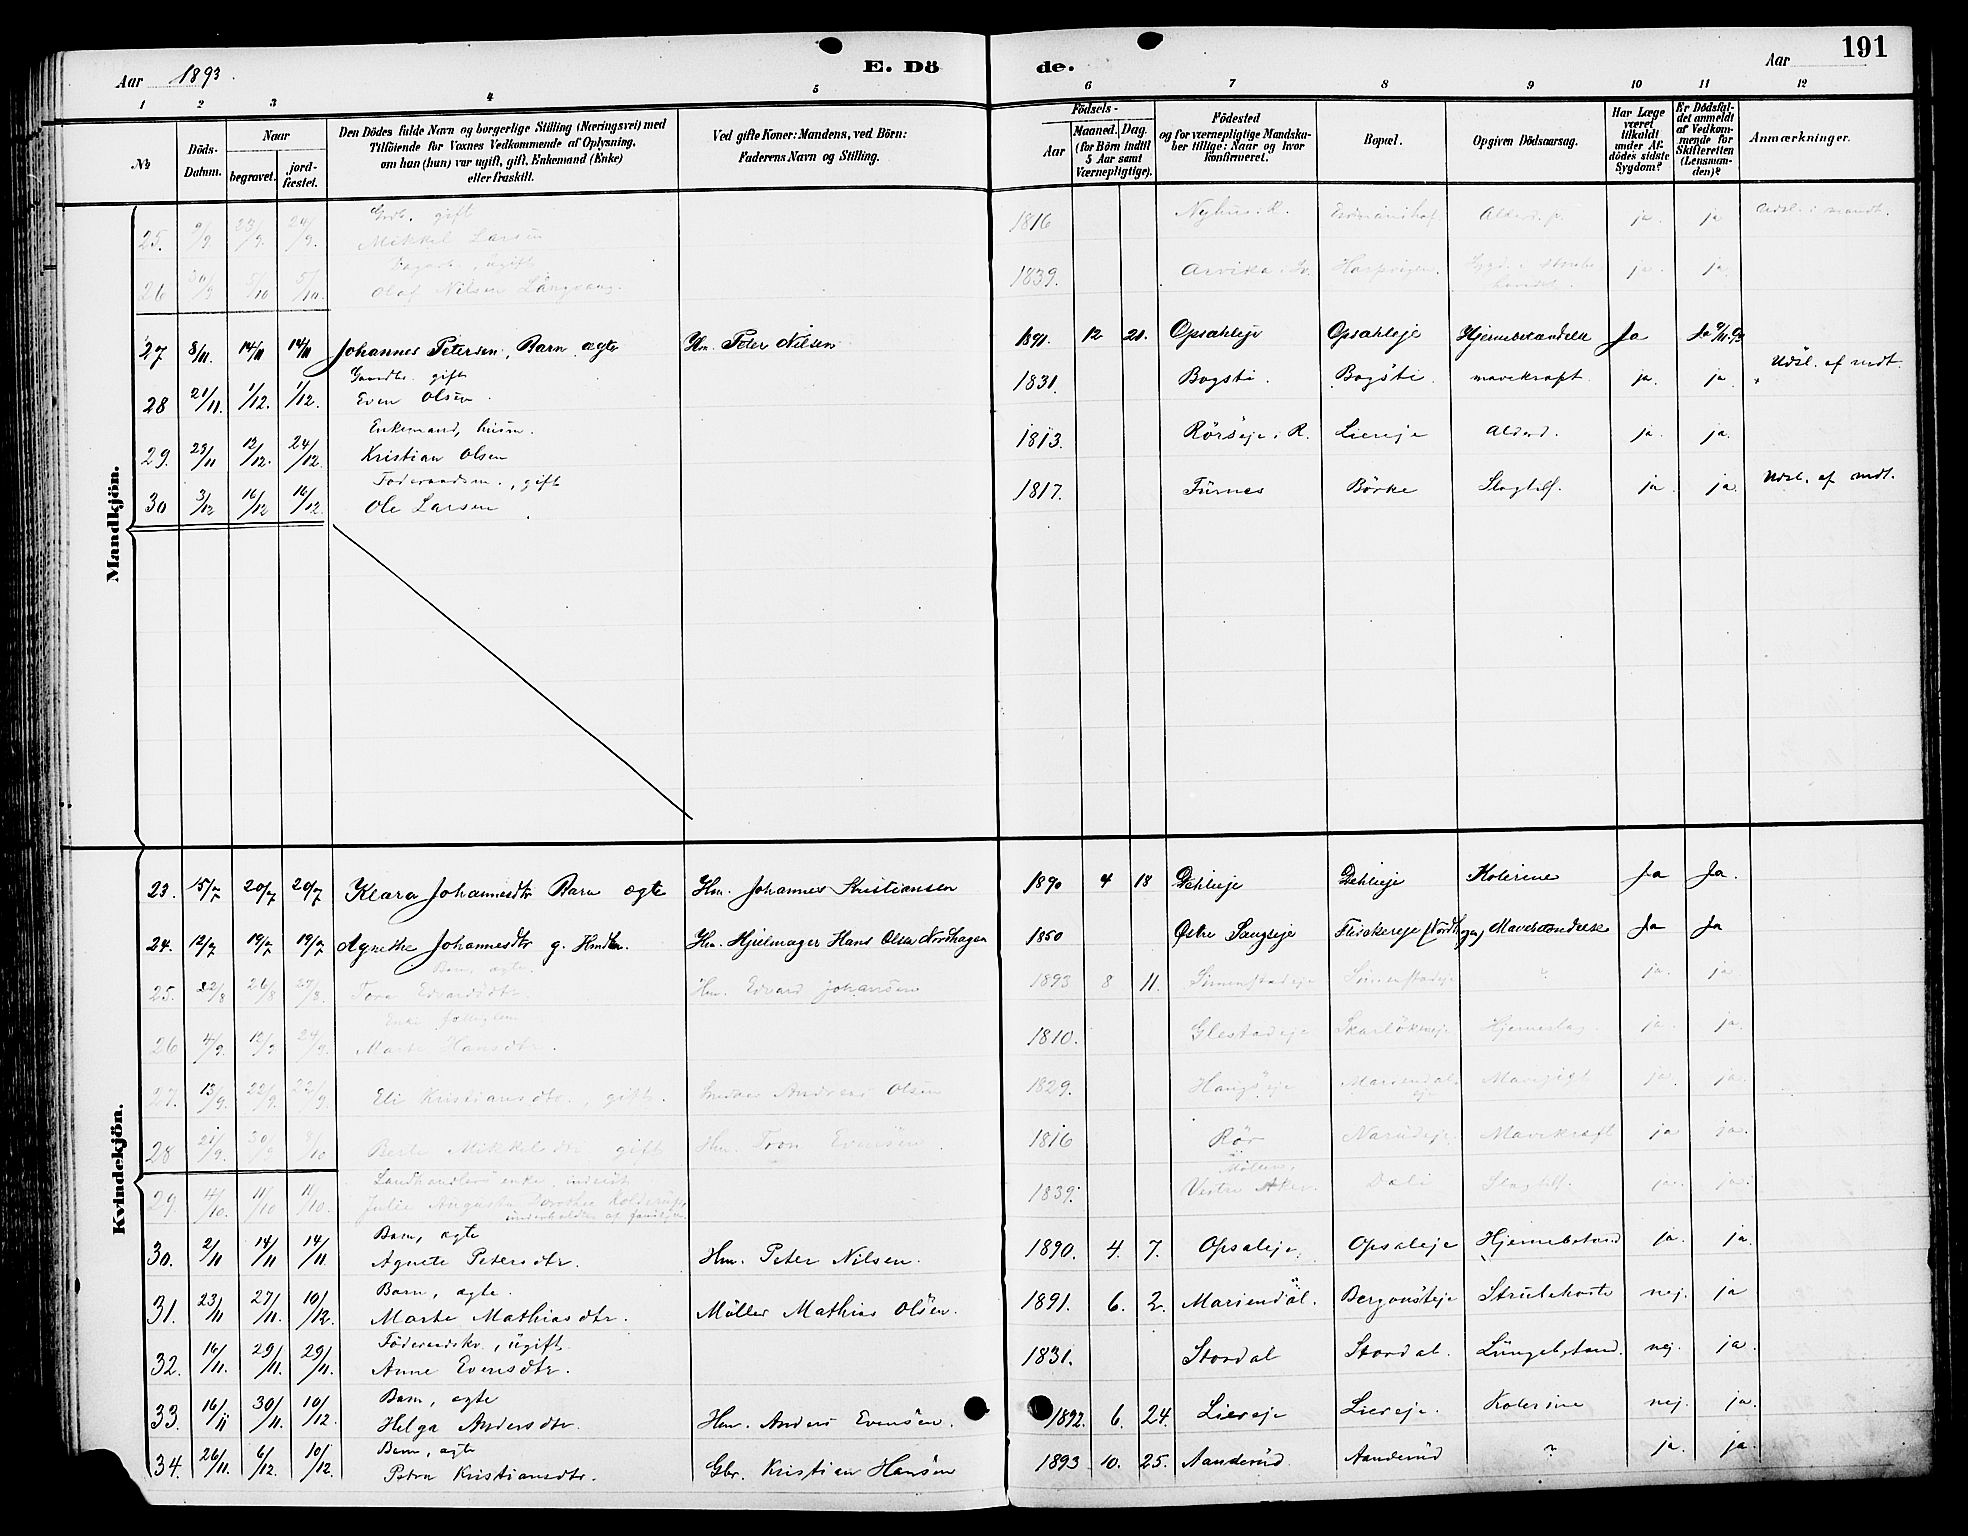 Aar 1893.
E. Dö
de.
Aar
191
1 2 3 4 5 6 7 8 9 10 11 12
№
Döds-Datum.
Naar
begravet.
jord-fæstet.
Den Dödes fulde Navn og borgerlige Stilling (Næringsvei) med
Tilföiende for Voxnes Vedkommende af Oplysning,
om han (hun) var ugift, gift, Enkemand (Enke)
eller fraskilt.
Ved gifte Koner: Mandens, ved Börn:
Faderens Navn og Stilling.
Födsels-
Aar
Maaned. Dag.
(for Börn indtil
5 Aar samt
Værnepligtige).
Födested
og for værnepligtige Mandska-
ber tillige: Naar og hvor
konfirmeret.
Bopæl.
Opgiven Dödsaarsag.
Har Læge
været
tilkaldt
under Af-
dödes sidste
Sygdom?
Er Dödsfal-
det anmeldt
af Vedkom-
mende for
Skifteretten
(Lensman-
den)?
Anmærkninger.
Mandkjön.
gift
25. 9/9 23/9 24/9. Mikkel Larsen 1816 Nyhus i R. Alderd. ja. ja
ugift
26 30/9 5/10 5/10. Olaf Nilsen 1839. Arvika i Sv. ja. ja.
27 8/11. 14/11 14/11 Johannes Petersen, Barn ægte Hm. Peter Nilsen 1891. 12 21. Opsahleje Opsahleje Hjernebetændelse Ja Ja
Gaardbr. gift
28 21/11. 1/12. 1/12. Even Olsen. 1831. Bogsti. Bogsti. mavekræft. ja. ja. Udsl. af mdt.
Enkemand, husm.
29. 29/11 12/12. 24/12. Kristian Olsen 1813. Rörseje i R. Liereje Alderd. ja. ja.
Föderaadsm., gift
30 3/12 16/12 16/12. Ole Larsen 1817. Furnes Börke Slagtilf. ja. ja. Udsl. af mdt.
Kvindekjön.
23. 15/7 20/7 20/7 Klara Johannesdtr Barn ægte Hm. Johannes Kristiansen 1890 4 18 Dehlieje Dehlieje Kolerine Ja Ja.
24. 12/7 19/7 19/7 Agnethe Johannesdtr g. Hm. Hjulmager Hans Olsen Nordhagen 1850 Østre Sangseje Maveb­etændelse Ja Ja
Barn, ægte.
25. 22/8 26/8 27/8. Tora Edvardsdtr. Hm. Edvard Johansen 1893 8 11. Simenstadeje Simenstadeje ? ja. ja
Enke fattiglem
26 4/9. 12/9 24/9. Marte Hansdtr. 1810. Glestadeje Hjerneslag. ja. ja.
27. 13/9. 22/9. 22/9 Eli Kristiansdtr., gift. Andreas Olsen 1829. Haugseje Mariendal eje Mavegigt ja. ja.
28 21/9. 30/9 8/10 Berte Mikkelsdtr gift Hm. Tron Evensen 1816 Rör Narudeje Mavekræft ja ja.
Landhandlers enke
29. 4/10. 11/10 11/10. Julie Augusta Dorothea Kolderup 1839. Vestre Aker Dæli Slagtilf. ja. ja.
Barn, ægte
30. 2/11 14/11 14/11. Agnete Petersdtr. Hm. Peter Nilsen. 1890. 4. 7. Opsaleje. Opsaleje Hjernebetænd ja. ja.
Barn, ægte.
31. 23/11 27/11. 10/12. Marte Mathiasdtr. Möller Mathias Olsen. 1891. 6. 2. Mariendal. Bergonsteje Strubehoste nej. ja
Föderaadskv, ugift.
32. 16/11. 29/11. 29/11. Anne Evensdtr. 1831. Stordal Stordal. Lungebetænd. nej. ja.
Barn, ægte
33. 16/11 30/11. 10/12. Helga Andersdtr. Hm. Anders Evensen. 1892. 6. 24. Liereje Liereje. Kolerine nej. ja.
Barn, ægte
34. 26/11. 6/12. 10/12. Petra Kristiansdtr. Gbr. Kristian Hansen 1893 10. 25. Aanderud. Aanderud ? ja. ja.